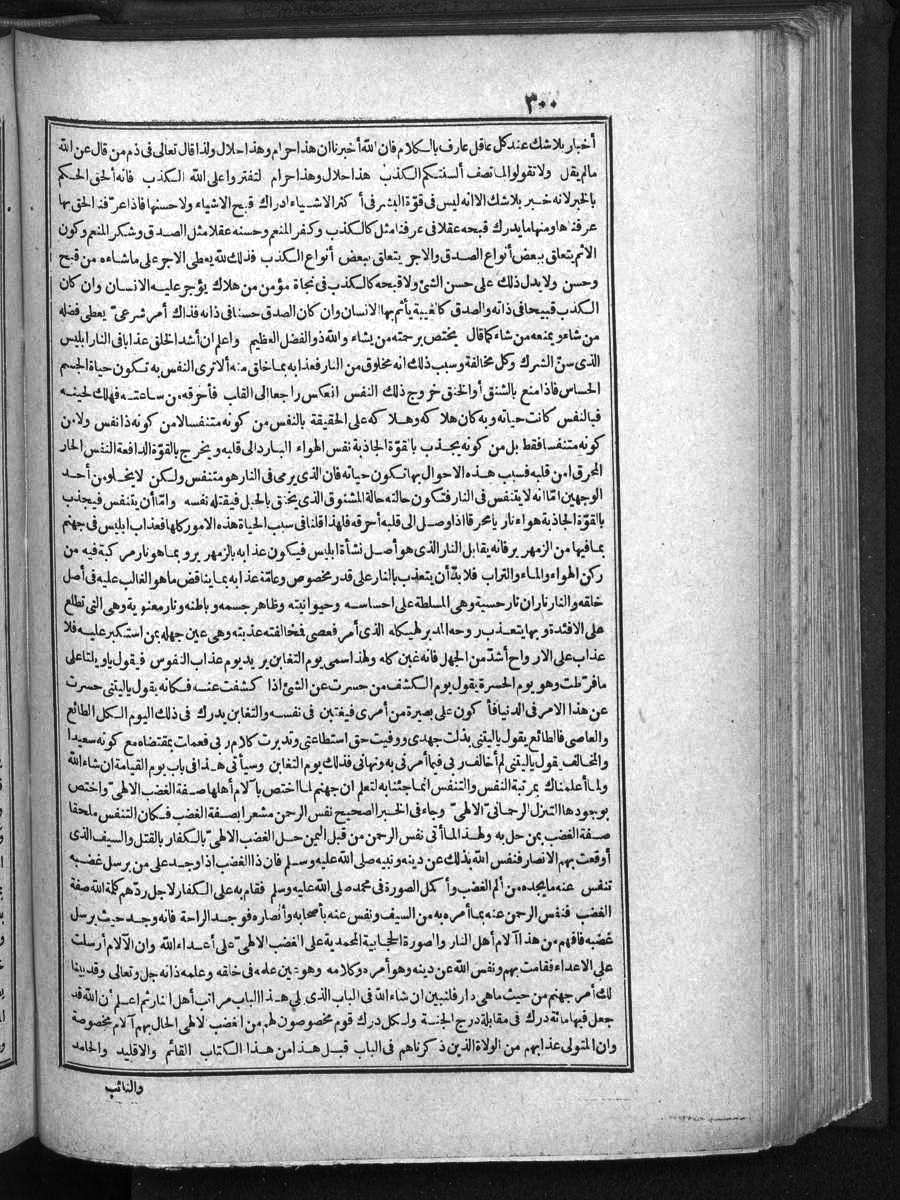 ٣٠٠
أخبار بلا شك عند كل عاقل عارف بالكلام فان الله أخبرنا ان هذا حرام وهذا حلال ولذا قال تعالى فى ذم من قال عن الله
مالم يقل ولا تقولوا لما تصف ألسنتكم الكذب هذا حلال وهذا حرام لتفتروا على الله الكذب فانه ألحق الحكم
بالخبر لانه خبر بلا شك الا انه ليس فى قوّة البشر فى أكثر الاشياء ادراك قبح الاشياء ولا حسنها فاذا عرّفنا الحق بها
عرفناها ومنها ما يدرك قبحه عقلا فى عرفنا مثل كالكذب وكفر المنعم وحسنه عقلا مثل الصدق وشكر المنعم وكون
الاثم يتعلق ببعض أنواع الصدق والاجر يتعلق ببعض أنواع الكذب فذلك لله يعطى الاجر على ما شاءه من قبح
وحسن ولا يدل ذلك على حسن الشئ ولا قبحه كالكذب فى نجاة مؤمن من هلاك يؤجر عليه الانسان وان كان
الكذب قبيحا فى ذاته والصدق كالغيبة يأثم بها الانسان وان كان الصدق حسنا فى ذاته فذاك أمر شرعىّ يعطى فضله
من شاء و يمنعه من شاء كما قال يختص برحمته من يشاء والله ذو الفضل العظيم واعلم ان أشد الخلق عذابا فى النار ابليس
الذى سنّ الشرك وكل مخالفة وسبب ذلك انه مخلوق من النار فعذابه بما خلق منه ألا ترى النفس به تكون حياة الجسم
الحساس فاذا منع بالشنق أو الخنق خروج ذلك النفس انعكس راجعا الى القلب فأحرقه من ساعته فهلك لحينه
فبالنفس كانت حياته و به كان هلاكه وهلاكه على الحقيقة بالنفس من كونه متنفسا لا من كونه ذا نفس ولا من
كونه متنفسا فقط بل من كونه يجذب بالقوّة الجاذبة نفس الهواء البارد الى قلبه و يخرج بالقوّة الدافعة النفس الحار
المحرق من قلبه فسبب هذه الاحوال بها تكون حياته فان الذى يرمى فى النار هو متنفس ولكن لا يخلو من أحد
الوجهين امّا انه لا يتنفس فى النار فتكون حالته حالة المشنوق الذى يخنق بالحبل فيقتله نفسه وامّا أن يتنفس فيجذب
بالقوّة الجاذبة هواء ناريا محرقا اذا وصل الى قلبه أحرقه فلهذا قلنا فى سبب الحياة هذه الامور كلها فعذاب ابليس فى جهنم
بما فيها من الزمهرير فانه يقابل النار الذى هو أصل نشأة ابليس فيكون عذابه بالزمهرير و بما هو نار مركبة فيه من
ركن الهواء والماء والتراب فلا بدّ أن يتعذب بالنار على قدر مخصوص وعامّة عذابه بما يناقض ما هو الغالب عليه فى أصل
خلقه والنار ناران نار حسية وهى المسلطة على احساسه وحيوانيته وظاهر جسمه و باطنه ونار معنوية وهى التى تطلع
على الافئدة و بها يتعذب روحه المدبر لهيكله الذى أمر فعصى فمخالفته عذبته وهى عين جهله بمن استكبر عليه فلا
عذاب على الارواح أشدّ من الجهل فانه غبن كله ولهذا سمى يوم التغابن يريد يوم عذاب النفوس فيقول ياو يلتا على
ما فرّطت وهو يوم الحسرة يقول يوم الكشف من حسرت عن الشئ اذا كشفت عنه فكأنه يقول ياليتنى حسرت
عن هذا الامر فى الدنيا فأكون على بصيرة من أمرى فيغتبن فى نفسه والتغابن يدرك فى ذلك اليوم الكل الطائع
والعاصى فالطائع يقول ياليتنى بذلت جهدى ووفيت حق استطاعتى وتدبرت كلام ربى فعملت بمقتضاه مع كونه سعيدا
والمخالف يقول ياليتنى لم أخالف ربى فيما أمرنى به ونهانى فذلك يوم التغابن وسيأتى هذا فى باب يوم القيامة ان شاء الله
ولما أعلمناك بمرتبة النفس والتنفس انما جئنا به لتعلم ان جهنم لما اختص با ٓلام أهلها صفة الغضب الالهىّ واختص
بوجودها التنزل الرحمانىّ الالهىّ وجاء فى الخبر الصحيح نفس الرحمن مشعرا بصفة الغضب فكان التنفس ملحقا
صفة الغضب بمن حل به ولهذا لما أتى نفس الرحمن من قبل اليمن حل الغضب الالهىّ بالكفار بالقتل والسيف الذى
أوقعت بهم الانصار فنفس الله بذلك عن دينه ونبيه صلى الله عليه وسلم فان ذا الغضب اذا وجد على من يرسل غضبه
تنفس عنه ما يجده من ألم الغضب وأكمل الصورة فى محمد صلى الله عليه وسلم فقام به على الكفار لاجل ردّهم كلمة الله صفة
الغضب فنفس الرحمن عنه بما أمره به من السيف ونفس عنه بأصحابه وأنصاره فوجد الراحة فانه وجد حيث يرسل
غضبه فافهم من هذا آلام أهل النار والصورة الحجابية المحمدية على الغضب الالهىّ على أعداء الله وان الآلام أرسلت
على الاعداء فقامت بهم ونفس الله عن دينه وهو أمره وكلامه وهو عين علمه فى خلقه وعلمه ذاته جل وتعالى وقد بينا
لك أمر جهنم من حيث ما هى دار فلنبين ان شاء الله فى الباب الذى يلى هذا الباب مراتب أهل النار ثم اعلم أن الله قد
جعل فيها مائة درك فى مقابلة درج الجنة ولكل درك قوم مخصوصون لهم من الغضب الالهى الحال بهم آلام مخصوصة
وان المتولى عذابهم من الولاة الذين ذكرناهم فى الباب قبل هذا من هذا الكتاب القائم والاقليد والحامد
والنائب